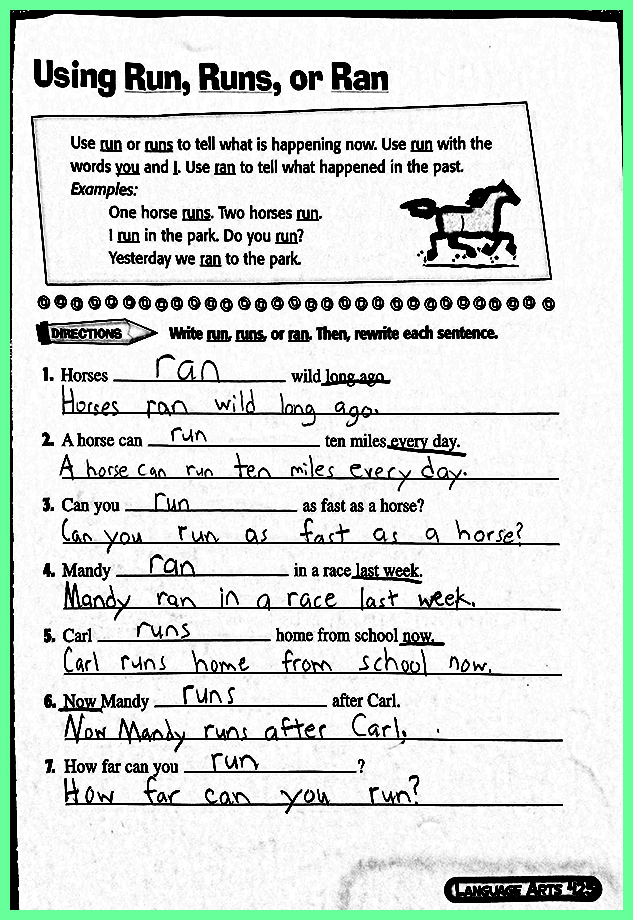 Using Run, Runs, or Ran
Use run or runs to tell what is happening now. Use run with the
words you and I. Use ran to tell what happened in the past.
Examples:
One horse runs. Two horses run.
I run in the park. Do you run?
Yesterday we ran to the park.
DIRECTIONS Write run, runs, or ran. Then, rewrite each sentence.
1. Horses ran wild long ago.
Horses ran wild long ago.
2. A horse can run ten miles every day.
A horse can run ten miles every day.
3. Can you run as fast as a horse?
Can you run as fast as a horse?
4. Mandy ran in a race last week.
Mandy ran in a race last week.
5. Carl runs home from school now.
Carl runs home from school now.
6. Now Mandy runs after Carl.
Now Mandy runs after Carl.
7. How far can you run ?
How far can you run?
LANGUAGE ARTS 425